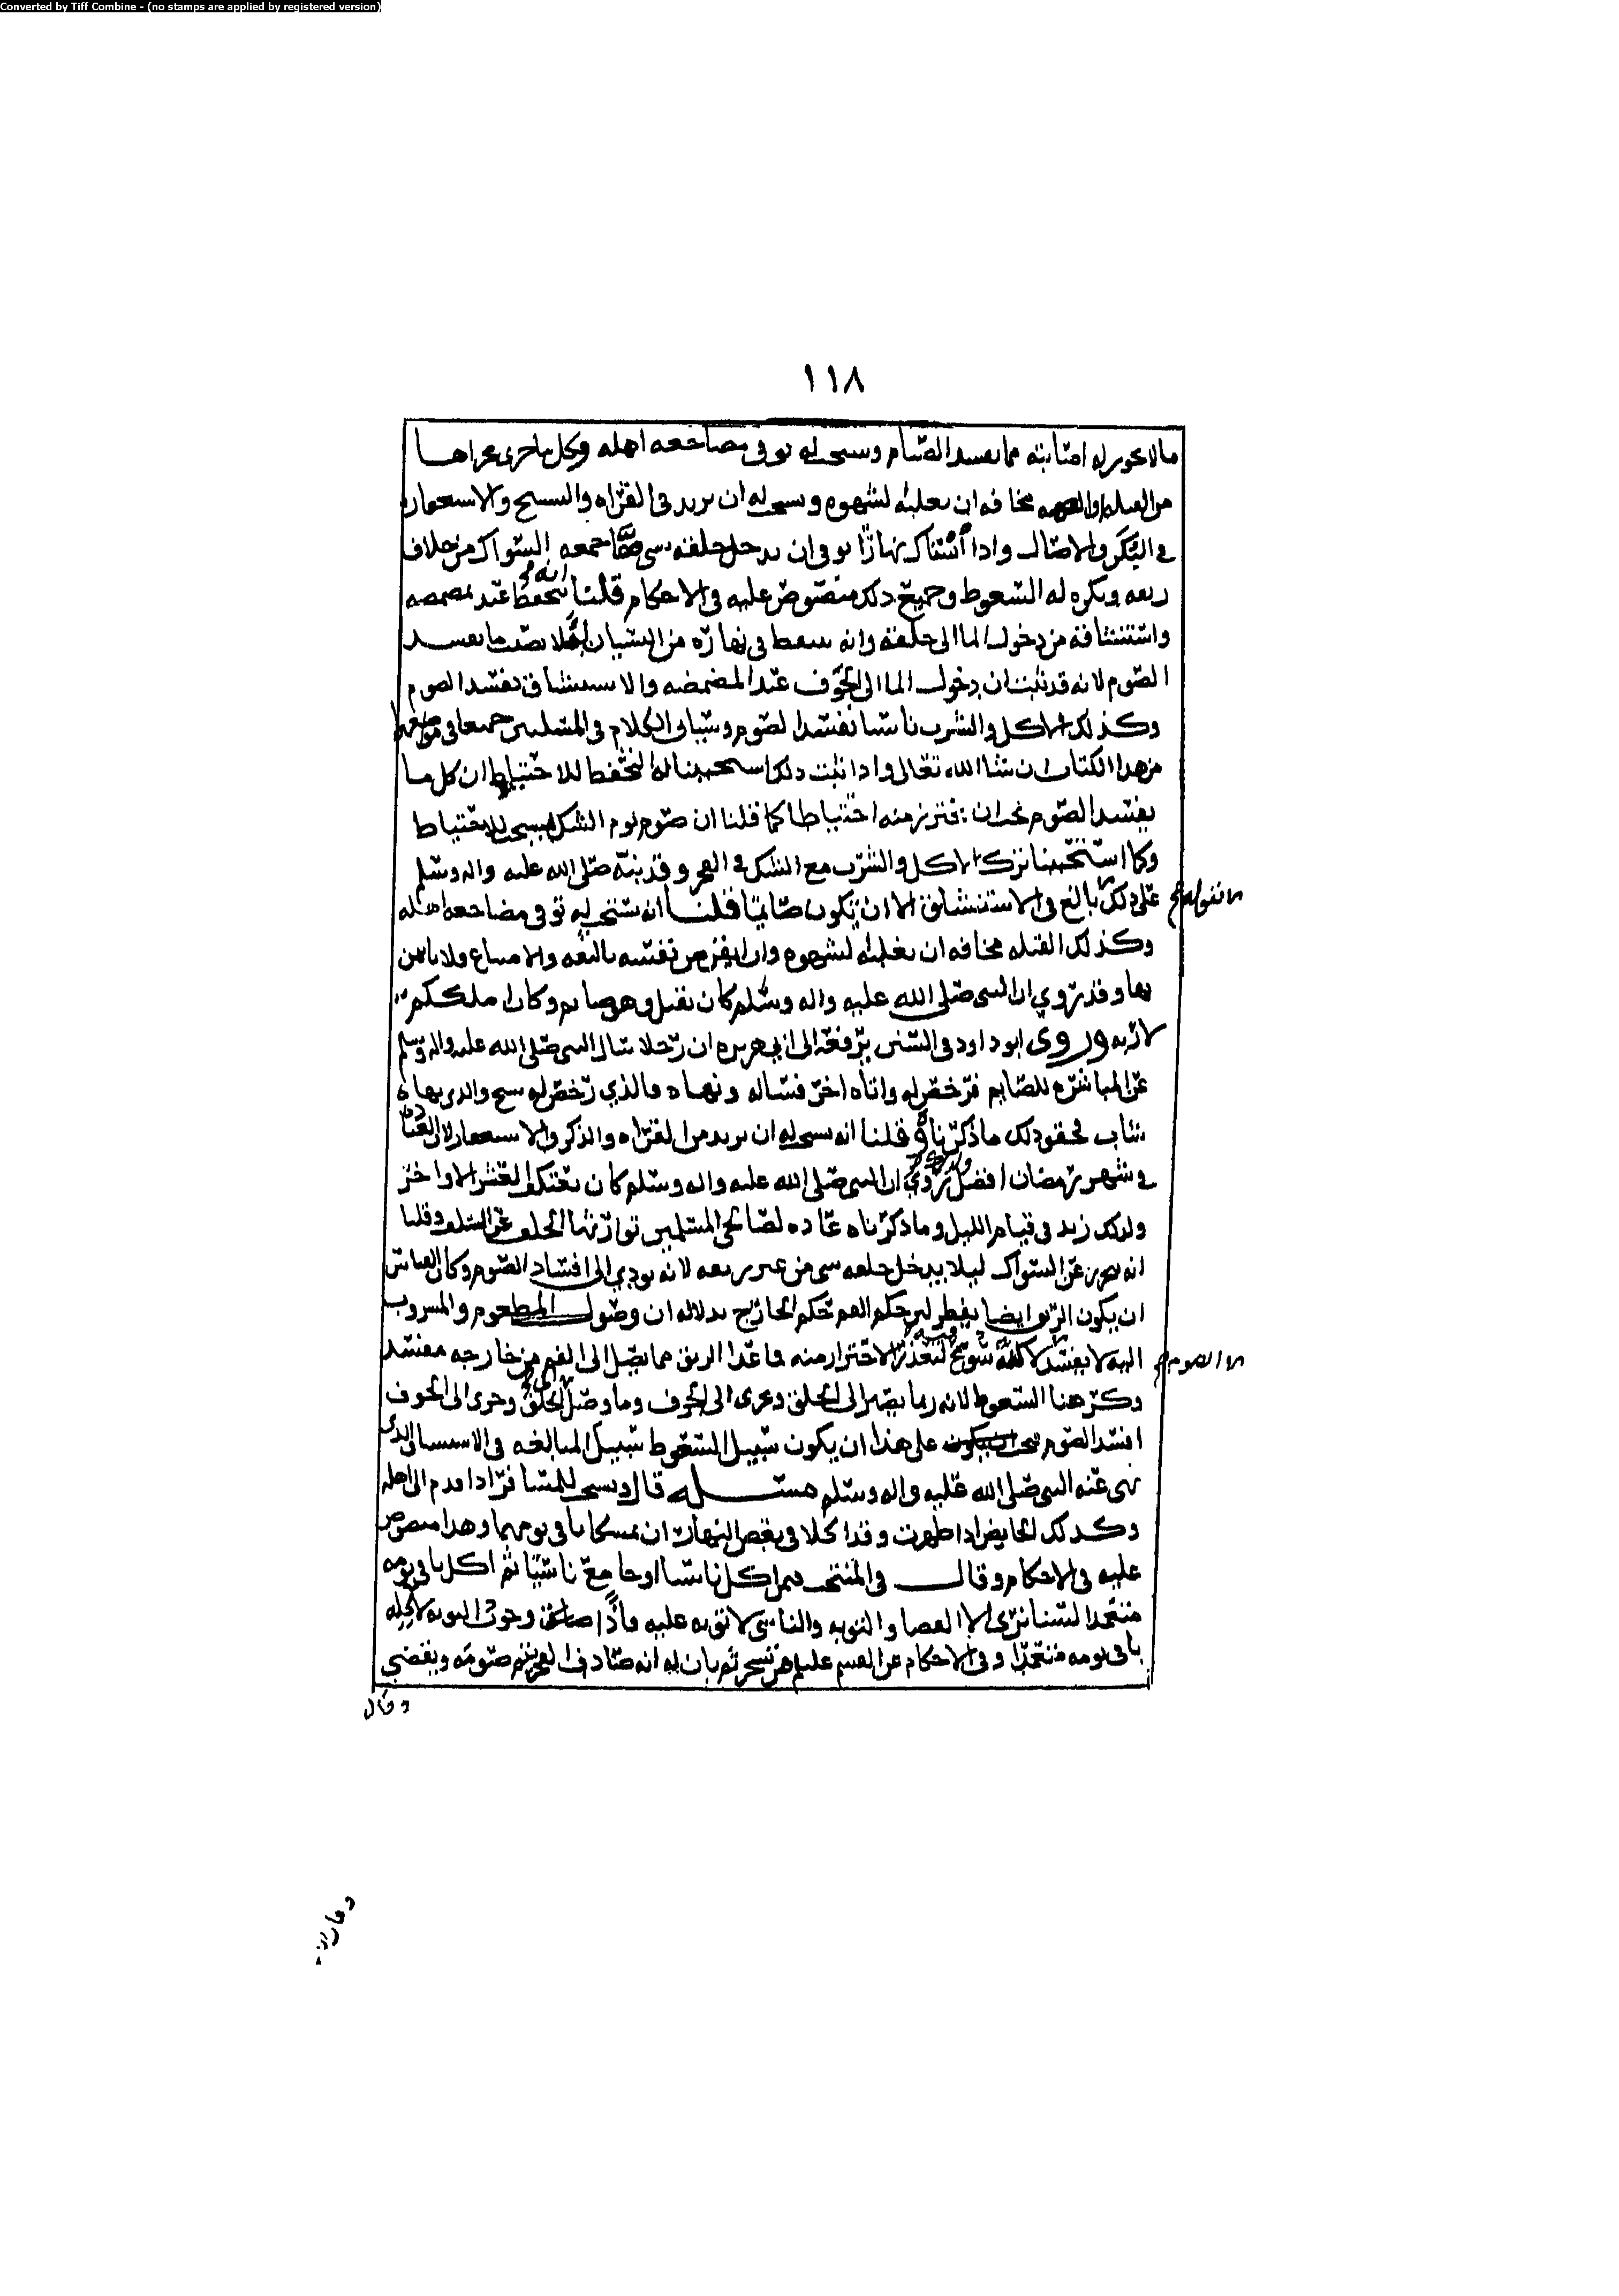 Converted by Tiff Combine - (no stamps are applied by registered version)
١١٨
ما لا يجوز له اصابته مما يفسد الصيام ويستحب له توقي مضاجعة اهله وكل ما جرى مجراها
من القبلة مخافة ان يغلبه الشهوه ويستحب له ان يزيد في القراه والتسبيح والاستغفار
في البكر والاصال واذا استاك نهارا توقى ان يدخل حلقه شي مما جمعه السواك من خلاف
ريقه ويكره له السعوط وجميع ذلك منصوص عليه في الاحكام قلنا انه يتحفظ عند تمضمضه
واستنشاقه من دخول الما الى حلقه وانه يتحفظ في نهاره من النسيان لئلا يصيب ما يفسد
الصوم لانه قد ثبت ان دخول الما الى الجوف عند المضمضه والاستنشاق يفسد الصوم
وكذلك الاكل والشرب ناسيا يفسد الصوم وسياتي الكلام في المسلتين جميعا في موضعهما
من هذا الكتاب ان شا الله تعالى واذا ثبت ذلك استحببنا له التحفظ للاحتياط ان كل ما
يفسد الصوم يجب ان يحترز منه احتياطا كما قلنا ان صوم يوم الشك يستحب للاحتياط
وكما استحببنا ترك الاكل والشرب مع الشك في الفجر وقد نبه صلى الله عليه واله وسلم
على ذلك بقوله بالغ في الاستنشاق الا ان تكون صائما قلنا انه يستحب له توقي مضاجعة اهله
وكذلك القبله مخافه ان يغلبه الشهوه وان لم يفز من نفسه بالثقه والامتناع ولا باس
بها وقد روي ان النبي صلى الله عليه واله وسلم كان يقبل وهو صايم وكان املككم
لاربه وروى ابو داود في السنن يرفعه الى ابي هريره ان رجلا سال النبي صلى الله عليه واله وسلم
عن المباشره للصايم فرخص له واتاه اخر فساله ونهاه فالذي رخص له شيخ والذي نهاه
شاب فحقق ذلك ما ذكرناه قلنا انه يستحب له ان يزيد من القراه والذكر والاستغفار لان العباده
في شهر رمضان افضل وروي ان النبي صلى الله عليه واله وسلم كان يعتكف العشر الاواخر
ولذلك زيد في قيام الليل وما ذكرناه عاده لصالحي المسلمين توارثها الخلف عن السلف وقلنا
انه يحترز عن السواك ليلا يدخل حلقه شي من غير ريقه لانه يودي الى افساد الصوم وكان القياس
ان يكون الريق ايضا يفطر لان حكم الفم حكم الخارج بدلالة ان وصول المطعوم والمشروب
اليه لا يفسد الصوم لكنه سومح فيه لتعذر الاحتراز منه فاعدا الريق مما يصل الى الفم من خارجه مفسد
وكرهنا السعوط لانه ربما يصير الى الحلق وجرى الى الجوف وما وصل الى الحلق وجرى الى الجوف
افسد الصوم على هذا ان يكون سبيل السعوط سبيل المبالغه في الاستنشاق الذي
نهى عنه النبي صلى الله عليه واله وسلم مسله قال ويستحب للمسافر اذا قدم الى اهله
وكذلك الحايض اذا طهرت وقد اكلا في بعض النهار ان يمسكا باقي يومهما وهذا منصوص
عليه في الاحكام وقال في المنتخب فيمن اكل ناسيا او جامع ناسيا ثم اكل باقي يومه
متعمدا لسنا نرى الا القضا والتوبه والناسي لا توبه عليه وجوب التوبه لاكله
باقي يومه متعمدا وفي الاحكام عن القسم عليه السلم فيمن تسحر ثم بان له انه صادف الفجر يتم صومه ويقضي
وقال